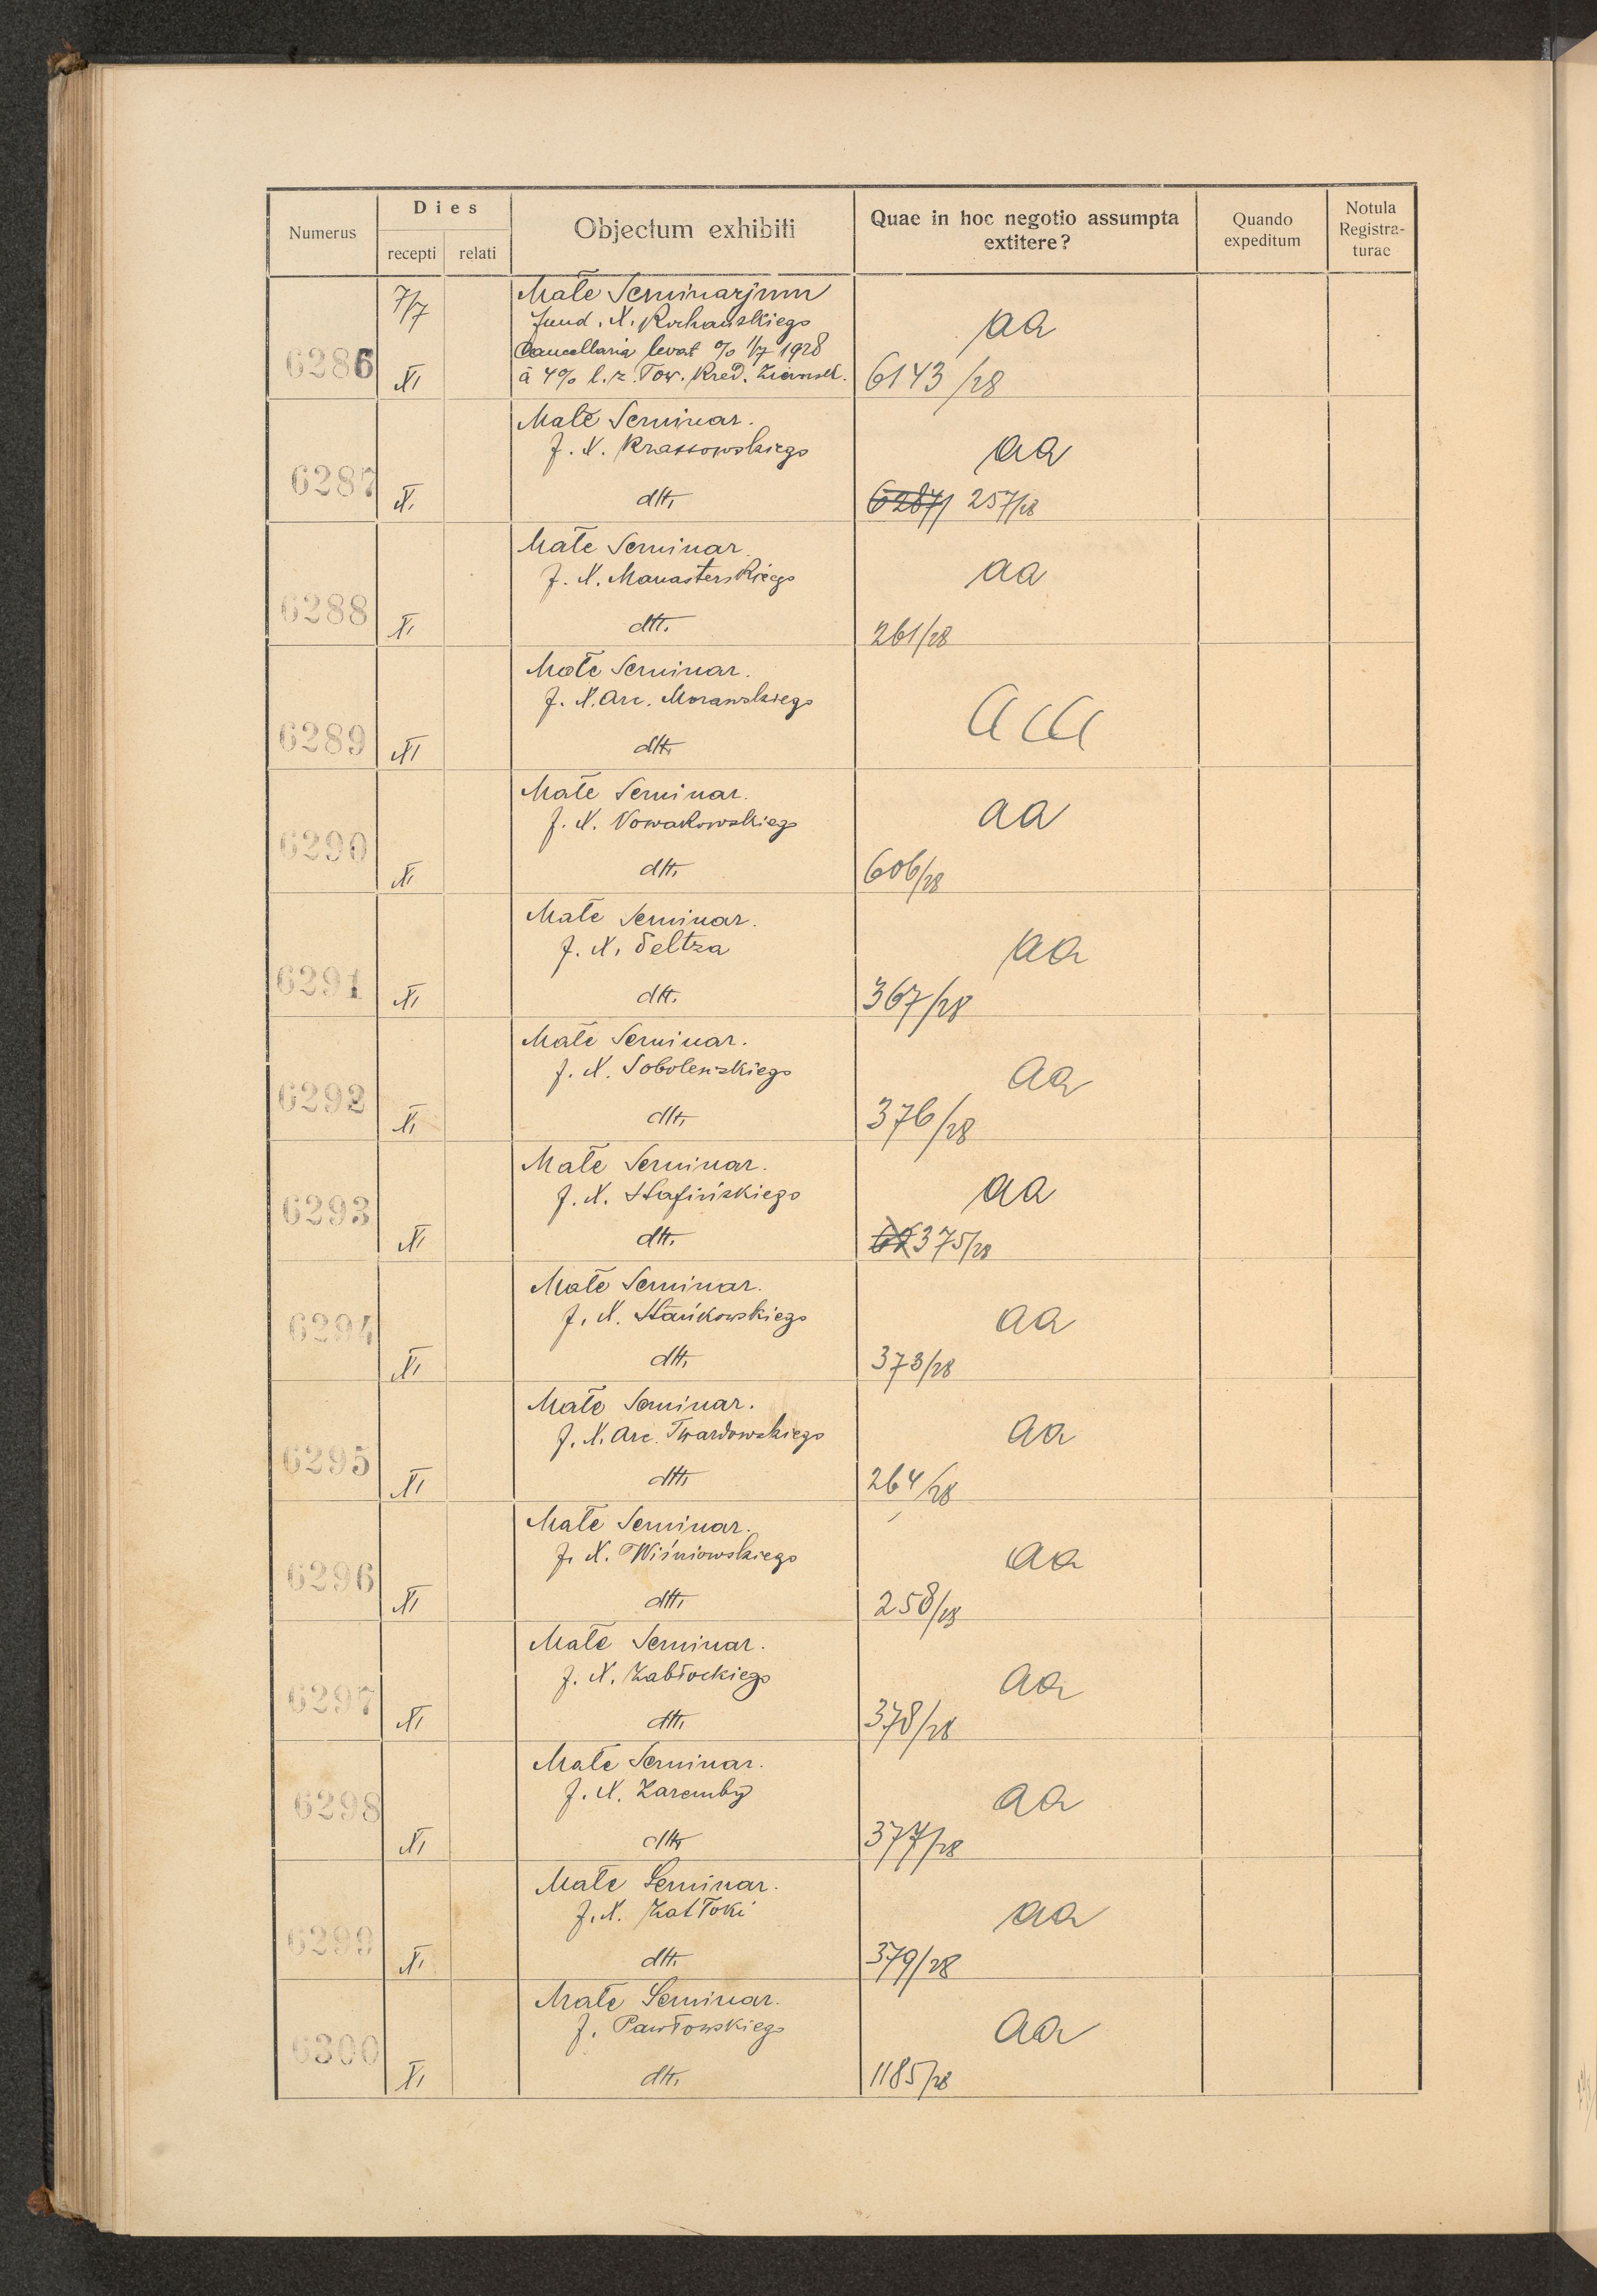 Numerus
Dies
recepti relati
Objectum exhibiti
Quae in hoc negotio assumpta
extitere?
Quando
expeditum
Notula
Registra-
turae
6286
7/7
XI
Małe Seminarjum
fund. X. Kochańskiego
Cancellaria levat % 1/7 1928
à 4% l. z. Tow. Kred. Ziemsk.
aa
6143/28
6287
X.
Małe Seminar.
f. X. Krassowskiego
dtt,
aa
6287/ 257/28
6288
XI
Małe Seminar.
f. X. Manasterskiego
dtt.
aa
261/28
6289
XI
Małe Seminar.
f. X. Arc. Morawskiego
dtt.
aa
6290
XI
Małe Seminar.
f. X. Nowakowskiego
dtt,
aa
606/28
6291
XI
Małe Seminar.
f. X. Seltza
dtt.
aa
367/28
6292
XI
Małe Seminar.
f. X. Sobolewskiego
dtt,
aa
376/28
6293
XI
Małe Seminar.
f. X. Stafińskiego
dtt.
aa
62 375/28
6294
XI
Małe Seminar.
f. X. Stańkowskiego
dtt,
aa
373/28
6295
XI
Małe Seminar.
f. X. Arc. Twardowskiego
dtt,
aa
264/28
6296
XI
Małe Seminar.
f. X. Wiśniowskiego
dtt,
aa
258/28
6297
XI
Małe Seminar.
f. X. Zabłockiego
dtt,
aa
378/28
6298
XI
Małe Seminar.
f. X. Zaremby
dtt,
aa
377/28
6299
XI
Małe Seminar.
f. X. Zatłoki
dtt.
aa
379/28
6300
XI
Małe Seminar.
f. Pawłowskiego
dtt,
aa
1185/28